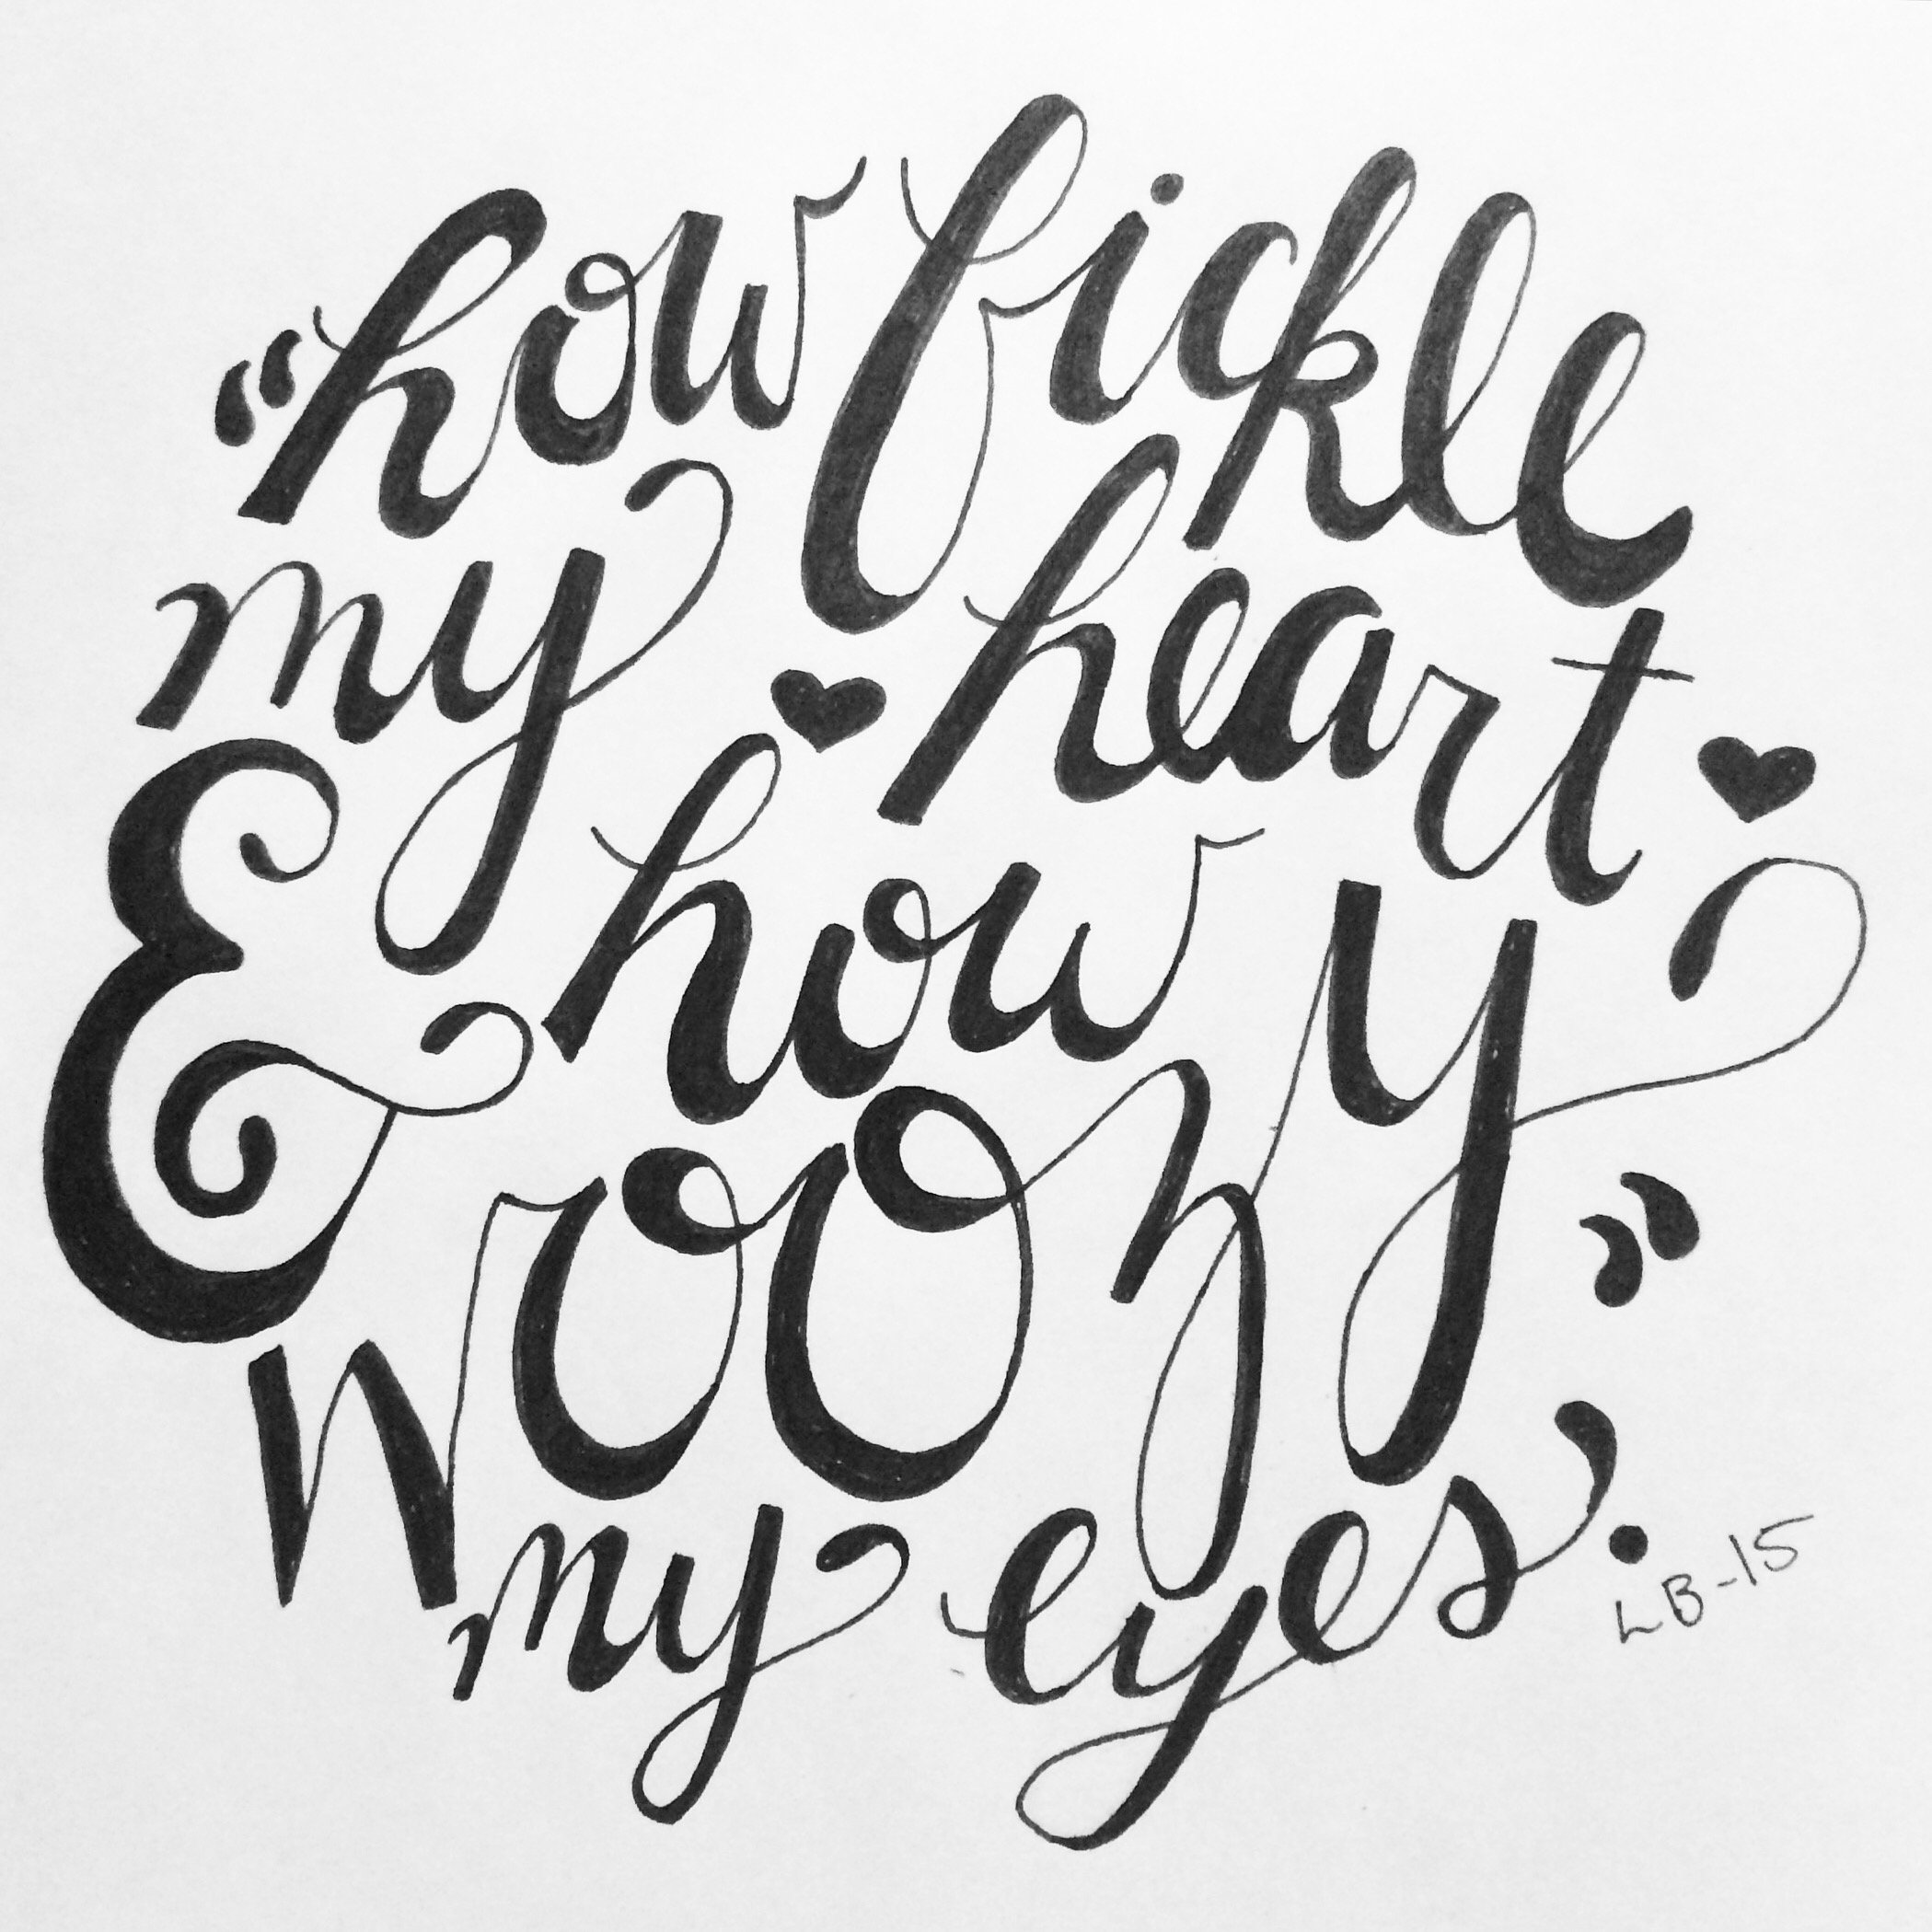 “how fickle
my heart
& how
woozy”
my eyes.
LB-15